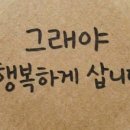 그래야
행복하게 삽니